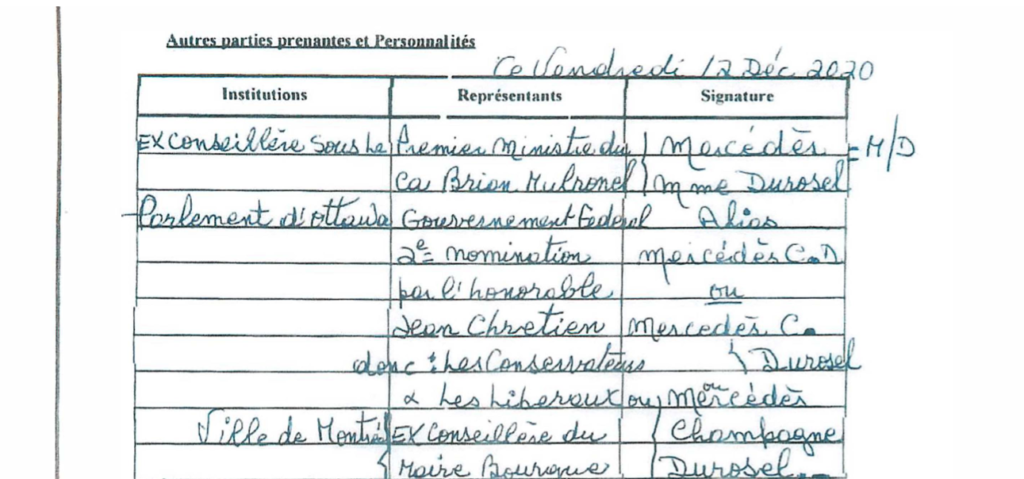 Autres parties prenantes et Personnalités
Ce Vendredi 12 Déc 2020
Institutions Représentants Signature
EX Conseillère Sous Le Premier Ministre du Mercédès = M/D
Ca Brian Mulronel Mme Durosel
Parlement d'ottawa Gouvernement Federel Alias
2e nomination mercédès C.D
par l'honorable ou
Jean Chretien Mercedès C.
donc : Les Conservateurs } Durosel
& Les Liberaux ou, ou Mercédès
Ville de Montréal EX Conseillère du { Champagne
{ Maire Bourque { Durosel